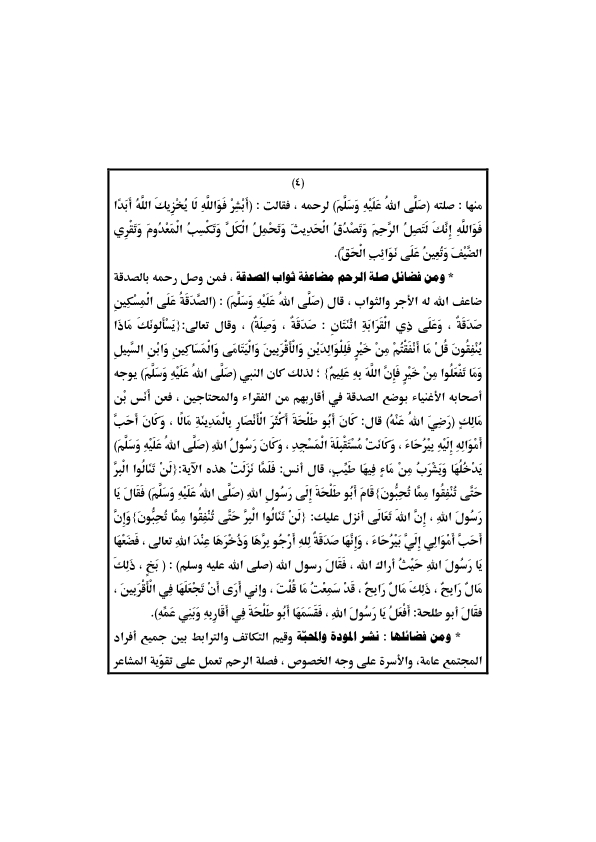 (٤)
منها : صلته (صَلَّى اللهُ عَلَيْهِ وَسَلَّمَ) لرحمه ، فقالت : (أَبْشِرْ فَوَاللَّهِ لَا يُخْزِيكَ اللَّهُ أَبَدًا
فَوَاللَّهِ إِنَّكَ لَتَصِلُ الرَّحِمَ وَتَصْدُقُ الْحَدِيثَ وَتَحْمِلُ الْكَلَّ وَتَكْسِبُ الْمَعْدُومَ وَتَقْرِي
الضَّيْفَ وَتُعِينُ عَلَى نَوَائِبِ الْحَقِّ).
* ومن فضائل صلة الرحم مضاعفة ثواب الصدقة ، فمن وصل رحمه بالصدقة
ضاعف الله له الأجر والثواب ، قال (صَلَّى اللهُ عَلَيْهِ وَسَلَّمَ) : (الصَّدَقَةُ عَلَى الْمِسْكِينِ
صَدَقَةٌ ، وَعَلَى ذِي الْقَرَابَةِ اثْنَتَانِ : صَدَقَةٌ ، وَصِلَةٌ) ، وقال تعالى:{يَسْأَلُونَكَ مَاذَا
يُنْفِقُونَ قُلْ مَا أَنْفَقْتُمْ مِنْ خَيْرٍ فَلِلْوَالِدَيْنِ وَالْأَقْرَبِينَ وَالْيَتَامَى وَالْمَسَاكِينِ وَابْنِ السَّبِيلِ
وَمَا تَفْعَلُوا مِنْ خَيْرٍ فَإِنَّ اللَّهَ بِهِ عَلِيمٌ} ؛ لذلك كان النبي (صَلَّى اللهُ عَلَيْهِ وَسَلَّمَ) يوجه
أصحابه الأغنياء بوضع الصدقة في أقاربهم من الفقراء والمحتاجين ، فعن أَنَس بْن
مَالِكٍ (رَضِيَ اللهُ عَنْهُ) قال: كَانَ أَبُو طَلْحَةَ أَكْثَرَ الْأَنْصَارِ بِالْمَدِينَةِ مَالًا ، وَكَانَ أَحَبَّ
أَمْوَالِهِ إِلَيْهِ بِيْرُحَاءَ ، وَكَانَتْ مُسْتَقْبِلَةَ الْمَسْجِدِ ، وَكَانَ رَسُولُ اللهِ (صَلَّى اللهُ عَلَيْهِ وَسَلَّمَ)
يَدْخُلُهَا وَيَشْرَبُ مِنْ مَاءٍ فِيهَا طَيِّبٍ، قال أنس: فَلَمَّا نَزَلَتْ هذه الآية:{لَنْ تَنَالُوا الْبِرَّ
حَتَّى تُنْفِقُوا مِمَّا تُحِبُّونَ}قَامَ أَبُو طَلْحَةَ إِلَى رَسُولِ اللهِ (صَلَّى اللهُ عَلَيْهِ وَسَلَّمَ) فَقَالَ يَا
رَسُولَ اللهِ ، إِنَّ اللهَ تَعَالَى أنزل عليك: {لَنْ تَنَالُوا الْبِرَّ حَتَّى تُنْفِقُوا مِمَّا تُحِبُّونَ}وَإِنَّ
أَحَبَّ أَمْوَالِي إِلَيَّ بَيْرُحَاءَ ، وَإِنَّهَا صَدَقَةٌ لِلهِ أَرْجُو بِرَّهَا وَذُخْرَهَا عِنْدَ اللهِ تعالى ، فَضَعْهَا
يَا رَسُولَ اللهِ حَيْثُ أراك الله ، فَقَالَ رسول الله (صلى الله عليه وسلم) : ( بَخٍ ، ذَلِكَ
مَالٌ رَابِحٌ ، ذَلِكَ مَالٌ رَابِحٌ ، قَدْ سَمِعْتُ مَا قُلْتَ ، وإني أَرَى أَنْ تَجْعَلَهَا فِي الْأَقْرَبِينَ ،
فقَالَ أبو طلحة: أَفْعَلُ يَا رَسُولَ اللهِ ، فَقَسَمَهَا أَبُو طَلْحَةَ فِي أَقَارِبِهِ وَبَنِي عَمِّهِ).
* ومن فضائلها : نشر المودة والمحبّة وقيم التكاتف والترابط بين جميع أفراد
المجتمع عامة، والأسرة على وجه الخصوص ، فصلة الرحم تعمل على تقوّية المشاعر